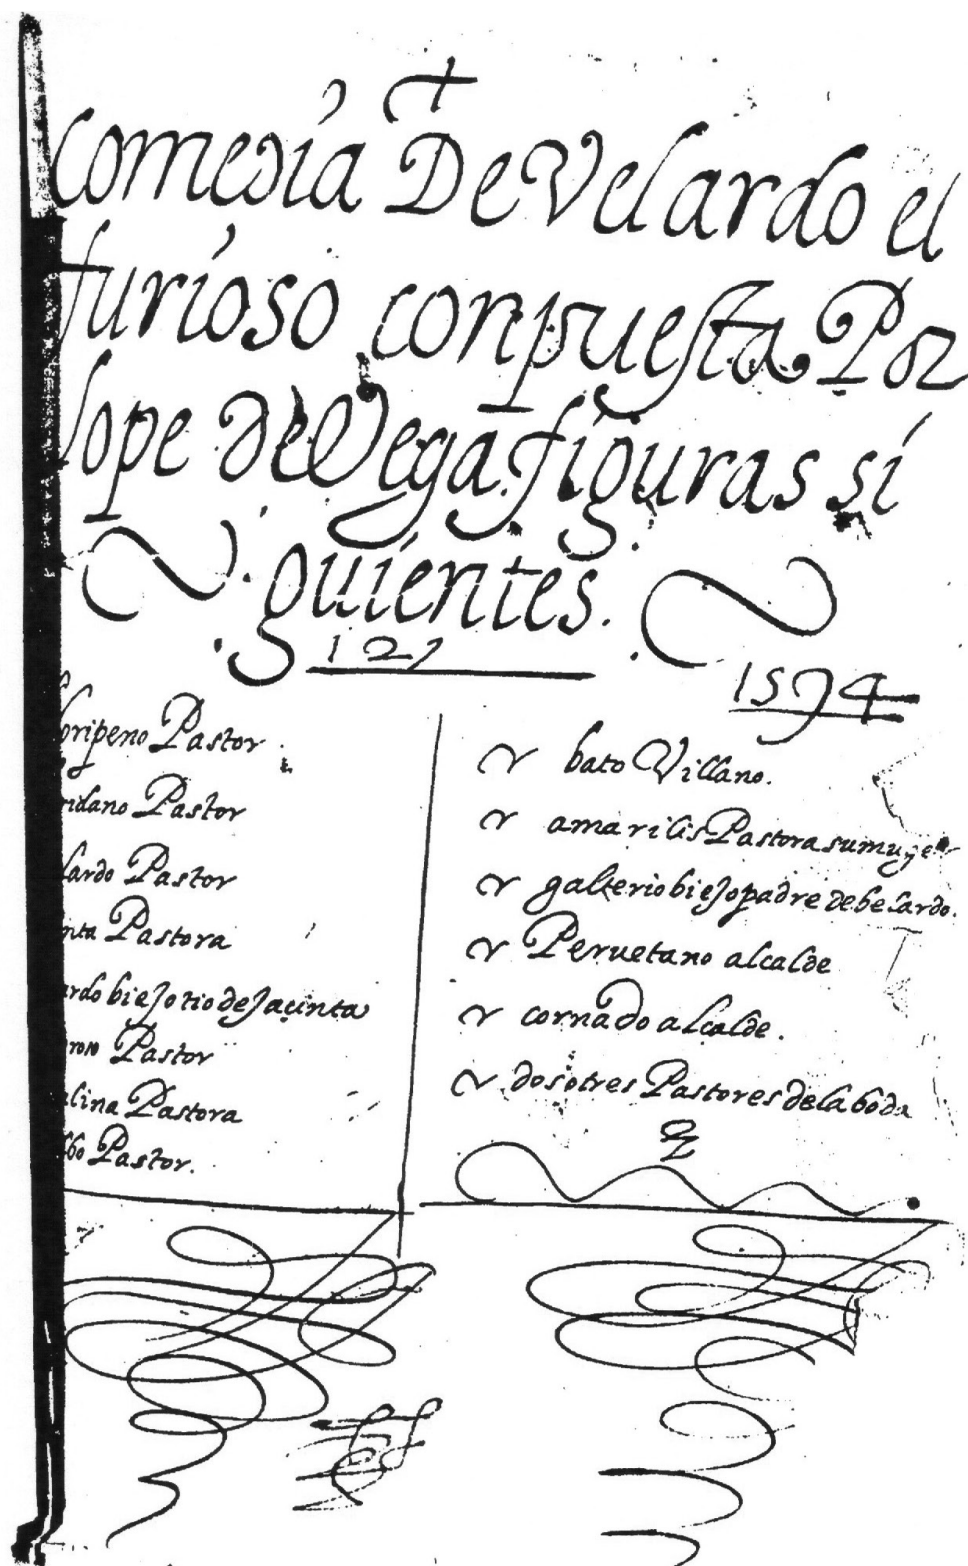 comedia De Velardo el
furioso conpuesta Por
lope de Vega. figuras si
guientes.
121
1594
oripeno Pastor
ridano Pastor
lardo Pastor
nta Pastora
ardo biejo tio de Jacinta
Pastor
lina Pastora
lbo Pastor.
bato Villano.
amarilis Pastora su muger
galterio biejo padre de belardo.
Peruetano alcalde
cornado alcalde.
dos o tres Pastores de la boda